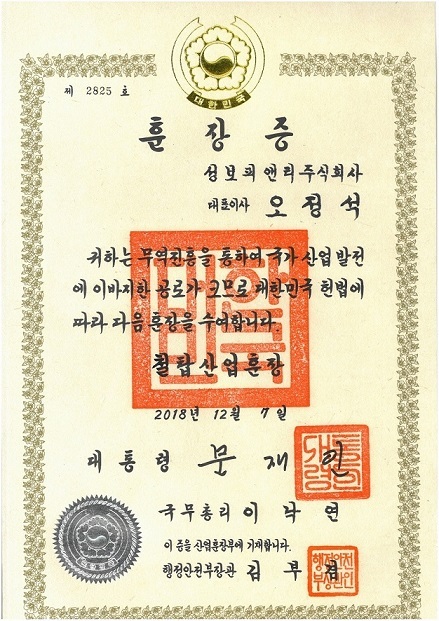 대한민국
제 2825 호
훈장증
성보피앤티주식회사
대표이사 오정석
귀하는 무역진흥을 통하여 국가 산업 발전
에 이바지한 공로가 크므로 대한민국 헌법에
따라 다음 훈장을 수여합니다.
철탑산업훈장
2018년 12월 7일
대통령 문재인
국무총리 이낙연
이 증을 산업훈장부에 기재합니다.
행정안전부장관 김부겸